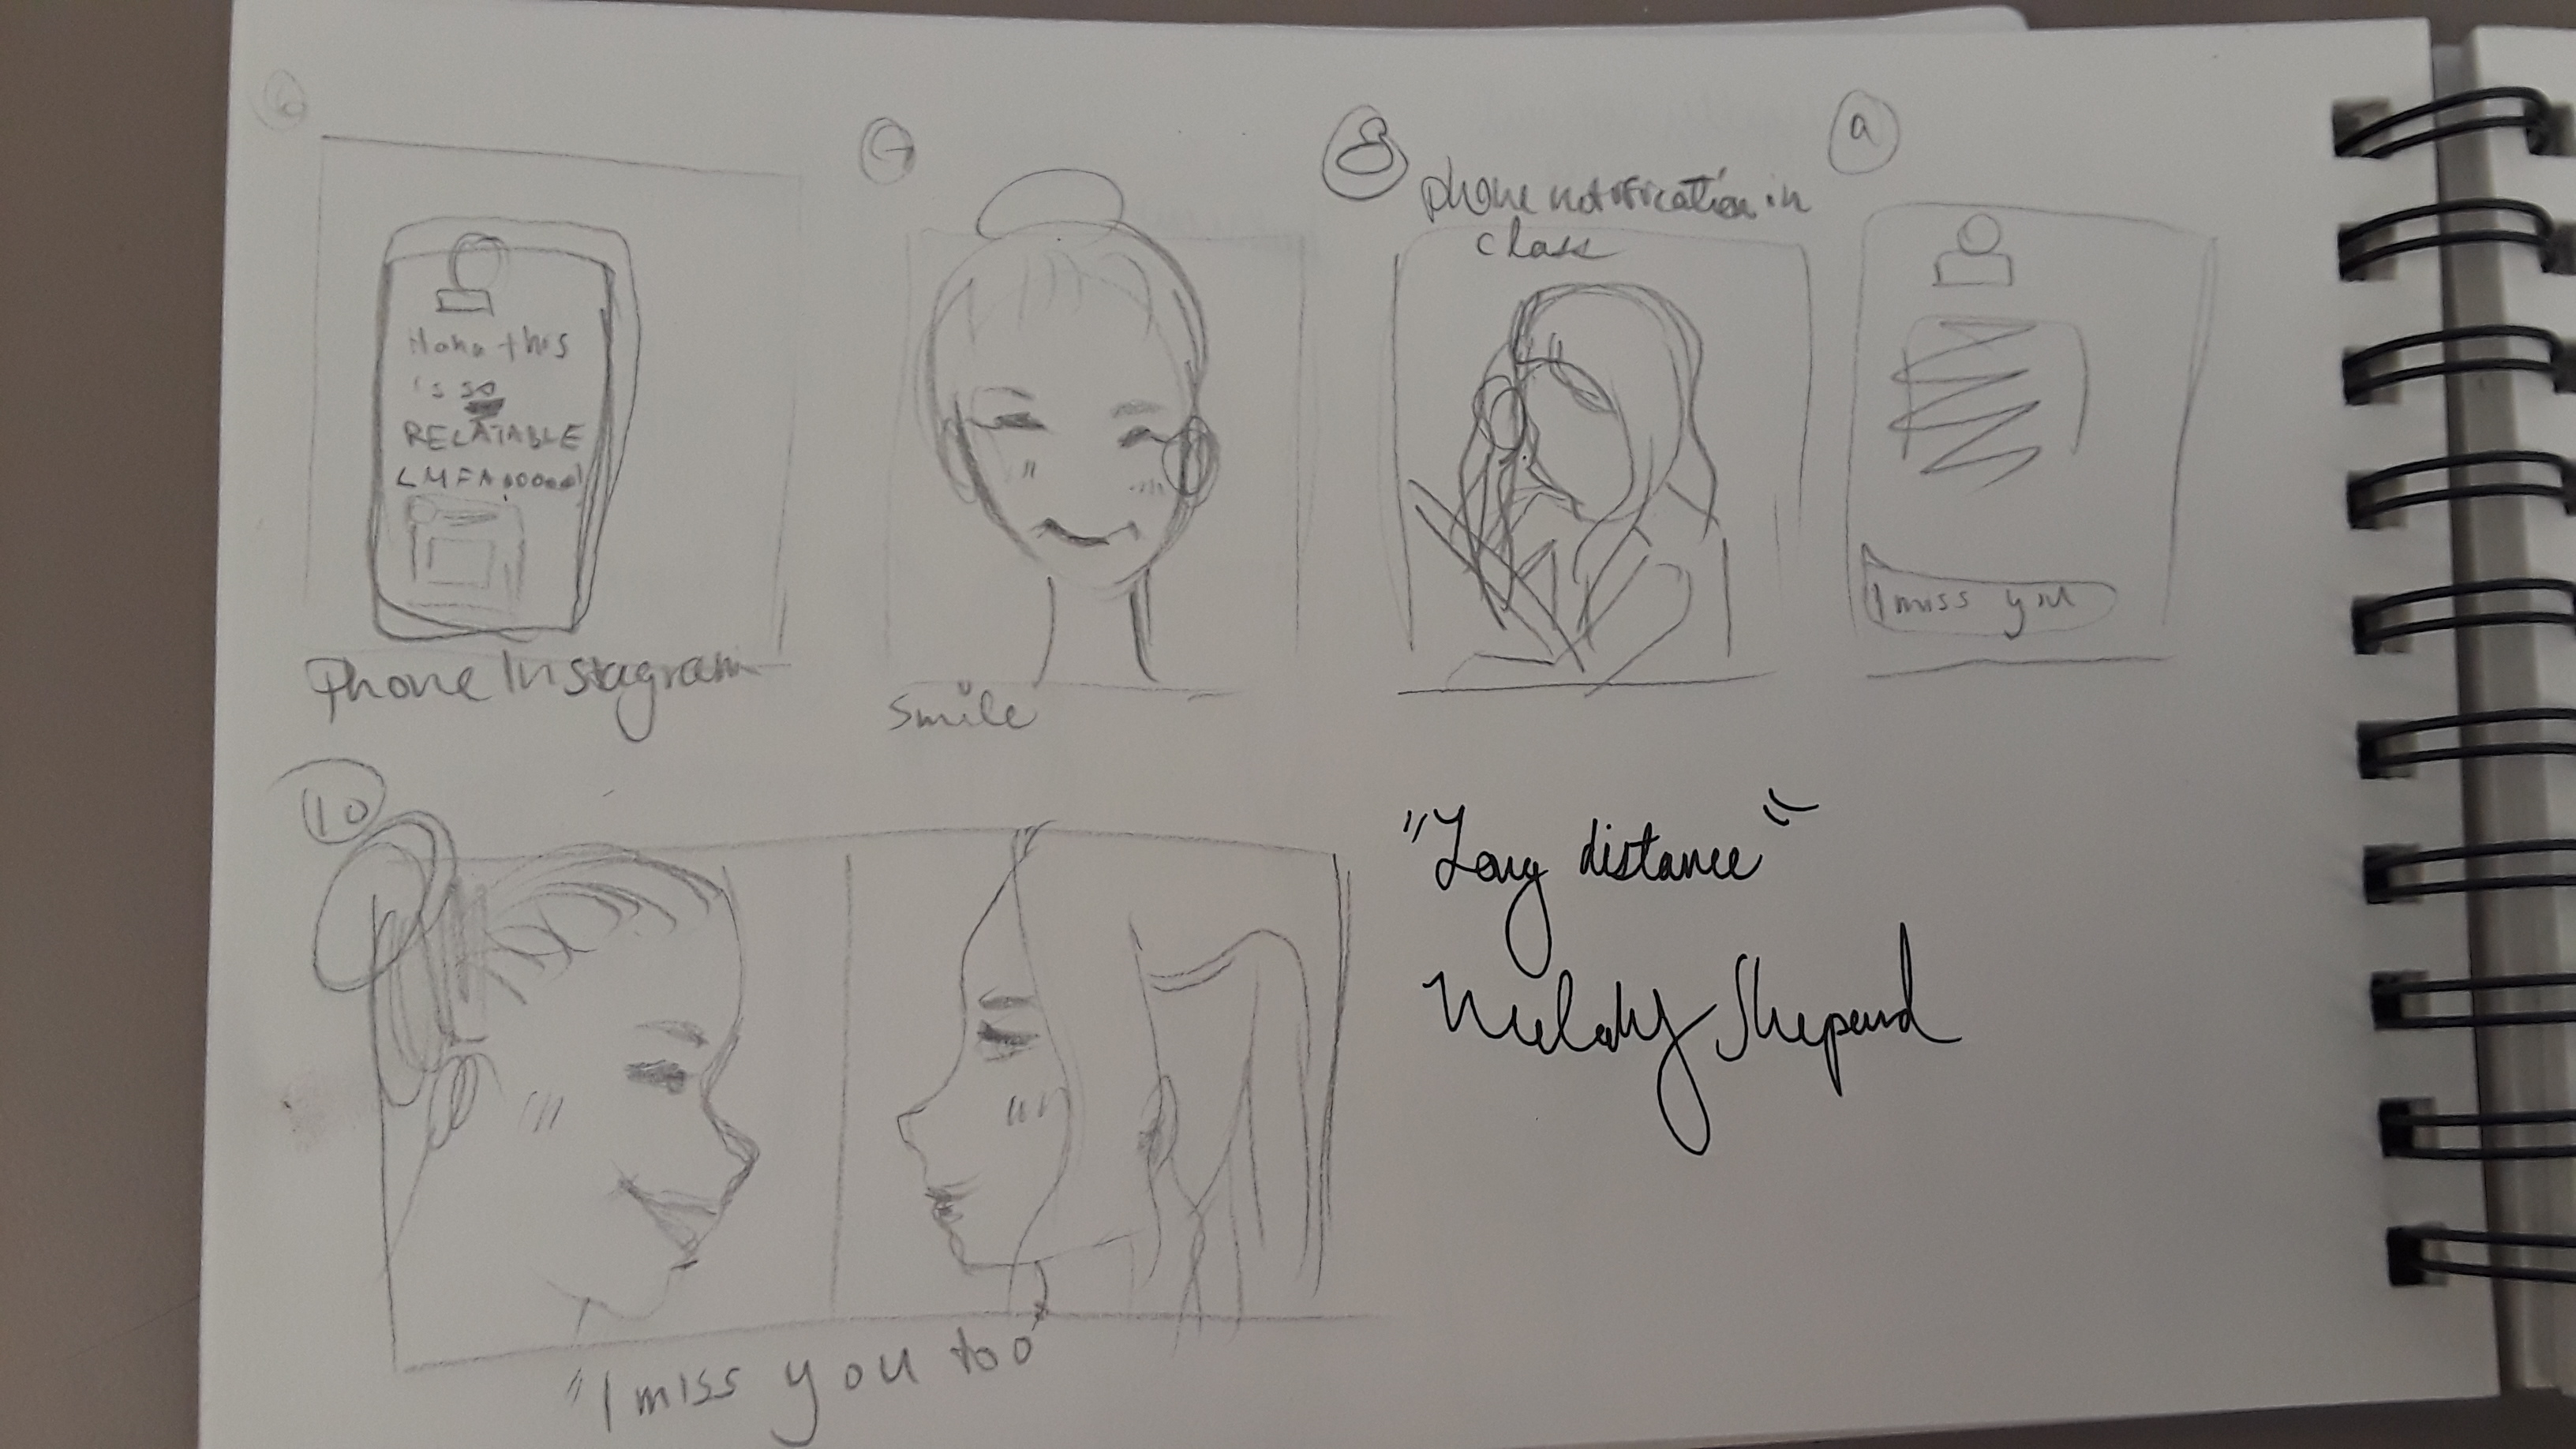 6
Haha this
is so
RELATABLE
LMFAooooo
Phone Instagram
7
smile
8
phone notification in
class
9
I miss you
10
"I miss you too"
"Long distance"
Melody Shepard